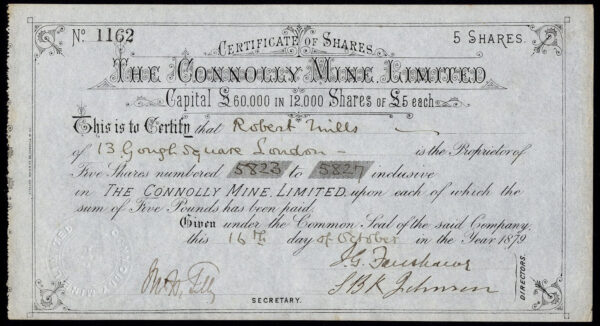 No. 1162
5 SHARES.
CERTIFICATE OF SHARES.
THE CONNOLLY MINE LIMITED
Capital £60.000 IN 12.000 SHARES OF £5 each.
This is to Certify that Robert Mills
of 13 Gough Square London - is the Proprietor of
Five Shares numbered 5823 to 5827 inclusive
in THE CONNOLLY MINE, LIMITED, upon each of which the
sum of Five Pounds has been paid.
Given under the Common Seal of the said Company,
this 16th day of October in the Year 1879
J.G. Fanshawe
S B K Johnson
SECRETARY.
DIRECTORS.